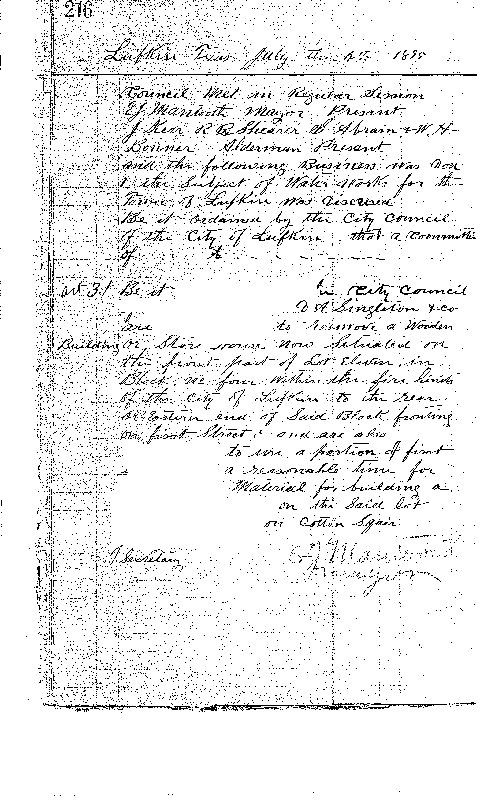 216
Lufkin Texas July the 4th 1895
Council Met in Regular Session
Mantooth Mayor Present
J Kerr R B Shearer W Abram & W. H
Bonner Alderman Present
and the following Business was Don
the Subject of Water Works for the
Town of Lufkin was Discussed
Be it ordained by the City Council
of the City of Lufkin that a Committee
of A
art 31 Be it City Council
D A Singleton & co
are to remove a Wooden
Building or Store room now Situated on
the front part of Lot Eleven in
Block no four within the fire limits
of the City of Lufkin to the rear
or Eastern end of Said Block fronting
on first Street & and are also
to use a portion of first
a reasonable time for
Material for building a
on the Said Lot
on Cotton Squair
Secretary
Mantooth
Mayor